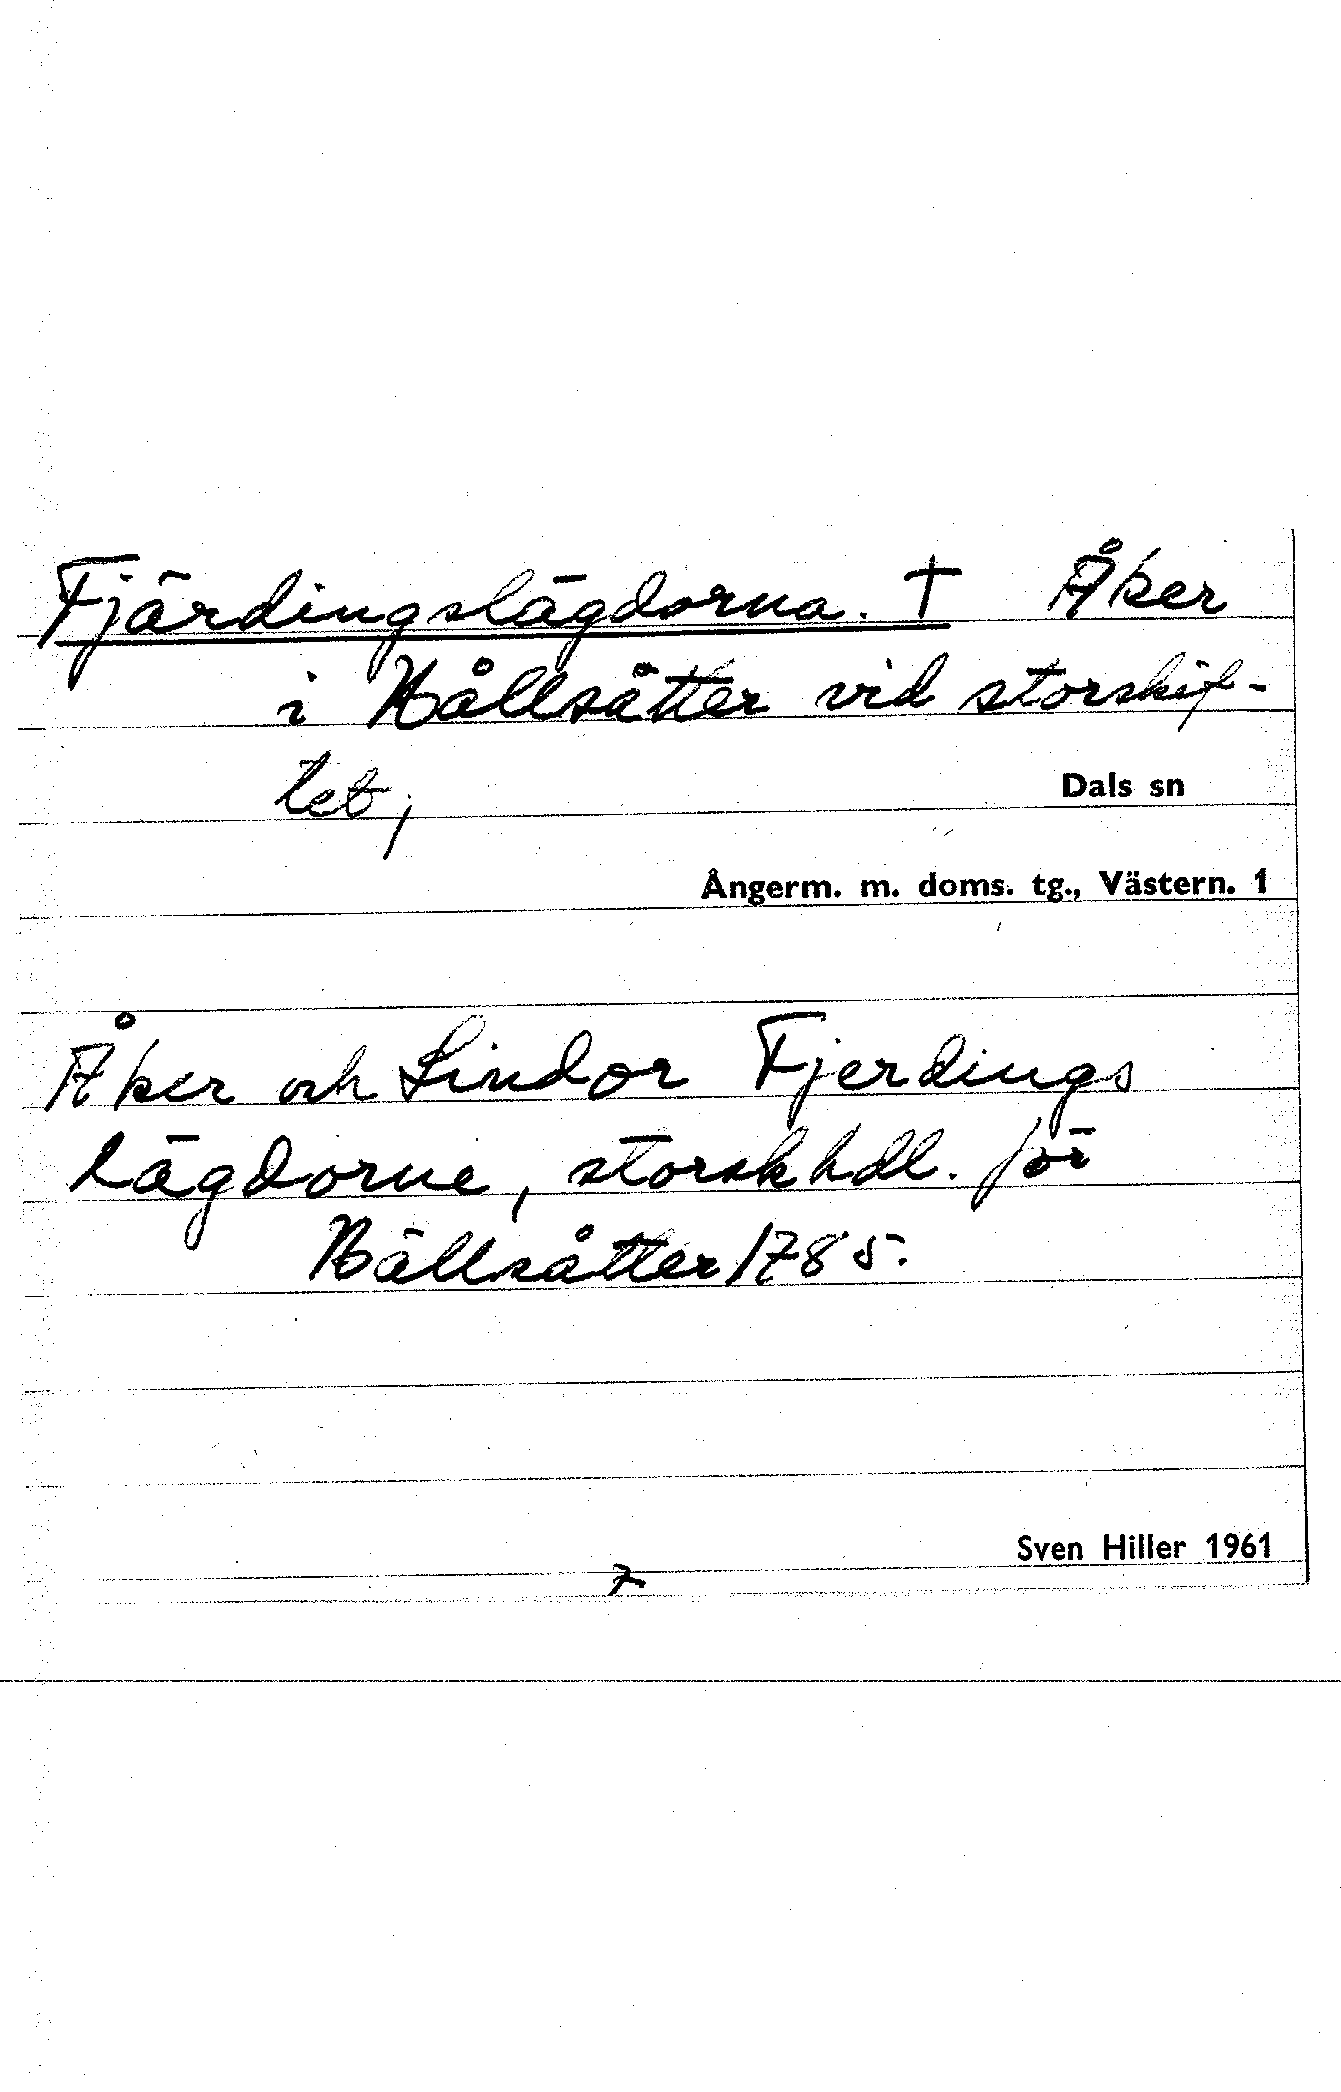 Fjärdingslägdorna. † Åker
i Hållsåtter vid storskif-
tet;
Dals sn
Ångerm. m. doms. tg., Västern. 1
Åker och Lindor Fjerdings
Lägdorne, storskhdl. för
Hållsåtter 1785.
Sven Hiller 1961